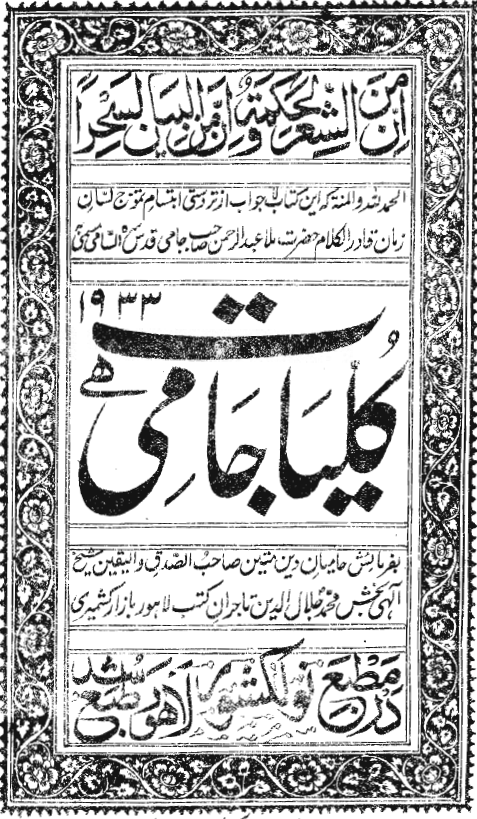 ان من الشعر لحکمة و ان من البیان لسحراً
الحمد لله والمنه که این کتاب لا جواب از تردستی ابتسام نموزج لسان
زمان قادر الکلام حضرت ملا عبد الرحمن صاحب جامی قدس سره السامی
۱۹۳۳
کلیات جامی
بفرمایش حامیان دین متین صاحب الصدق والیقین شیخ
الٰهی بخش محمد جلال الدین تاجران کتب لاهور بازار کشمیری
در مطبع نولکشور لاهور طبع شد